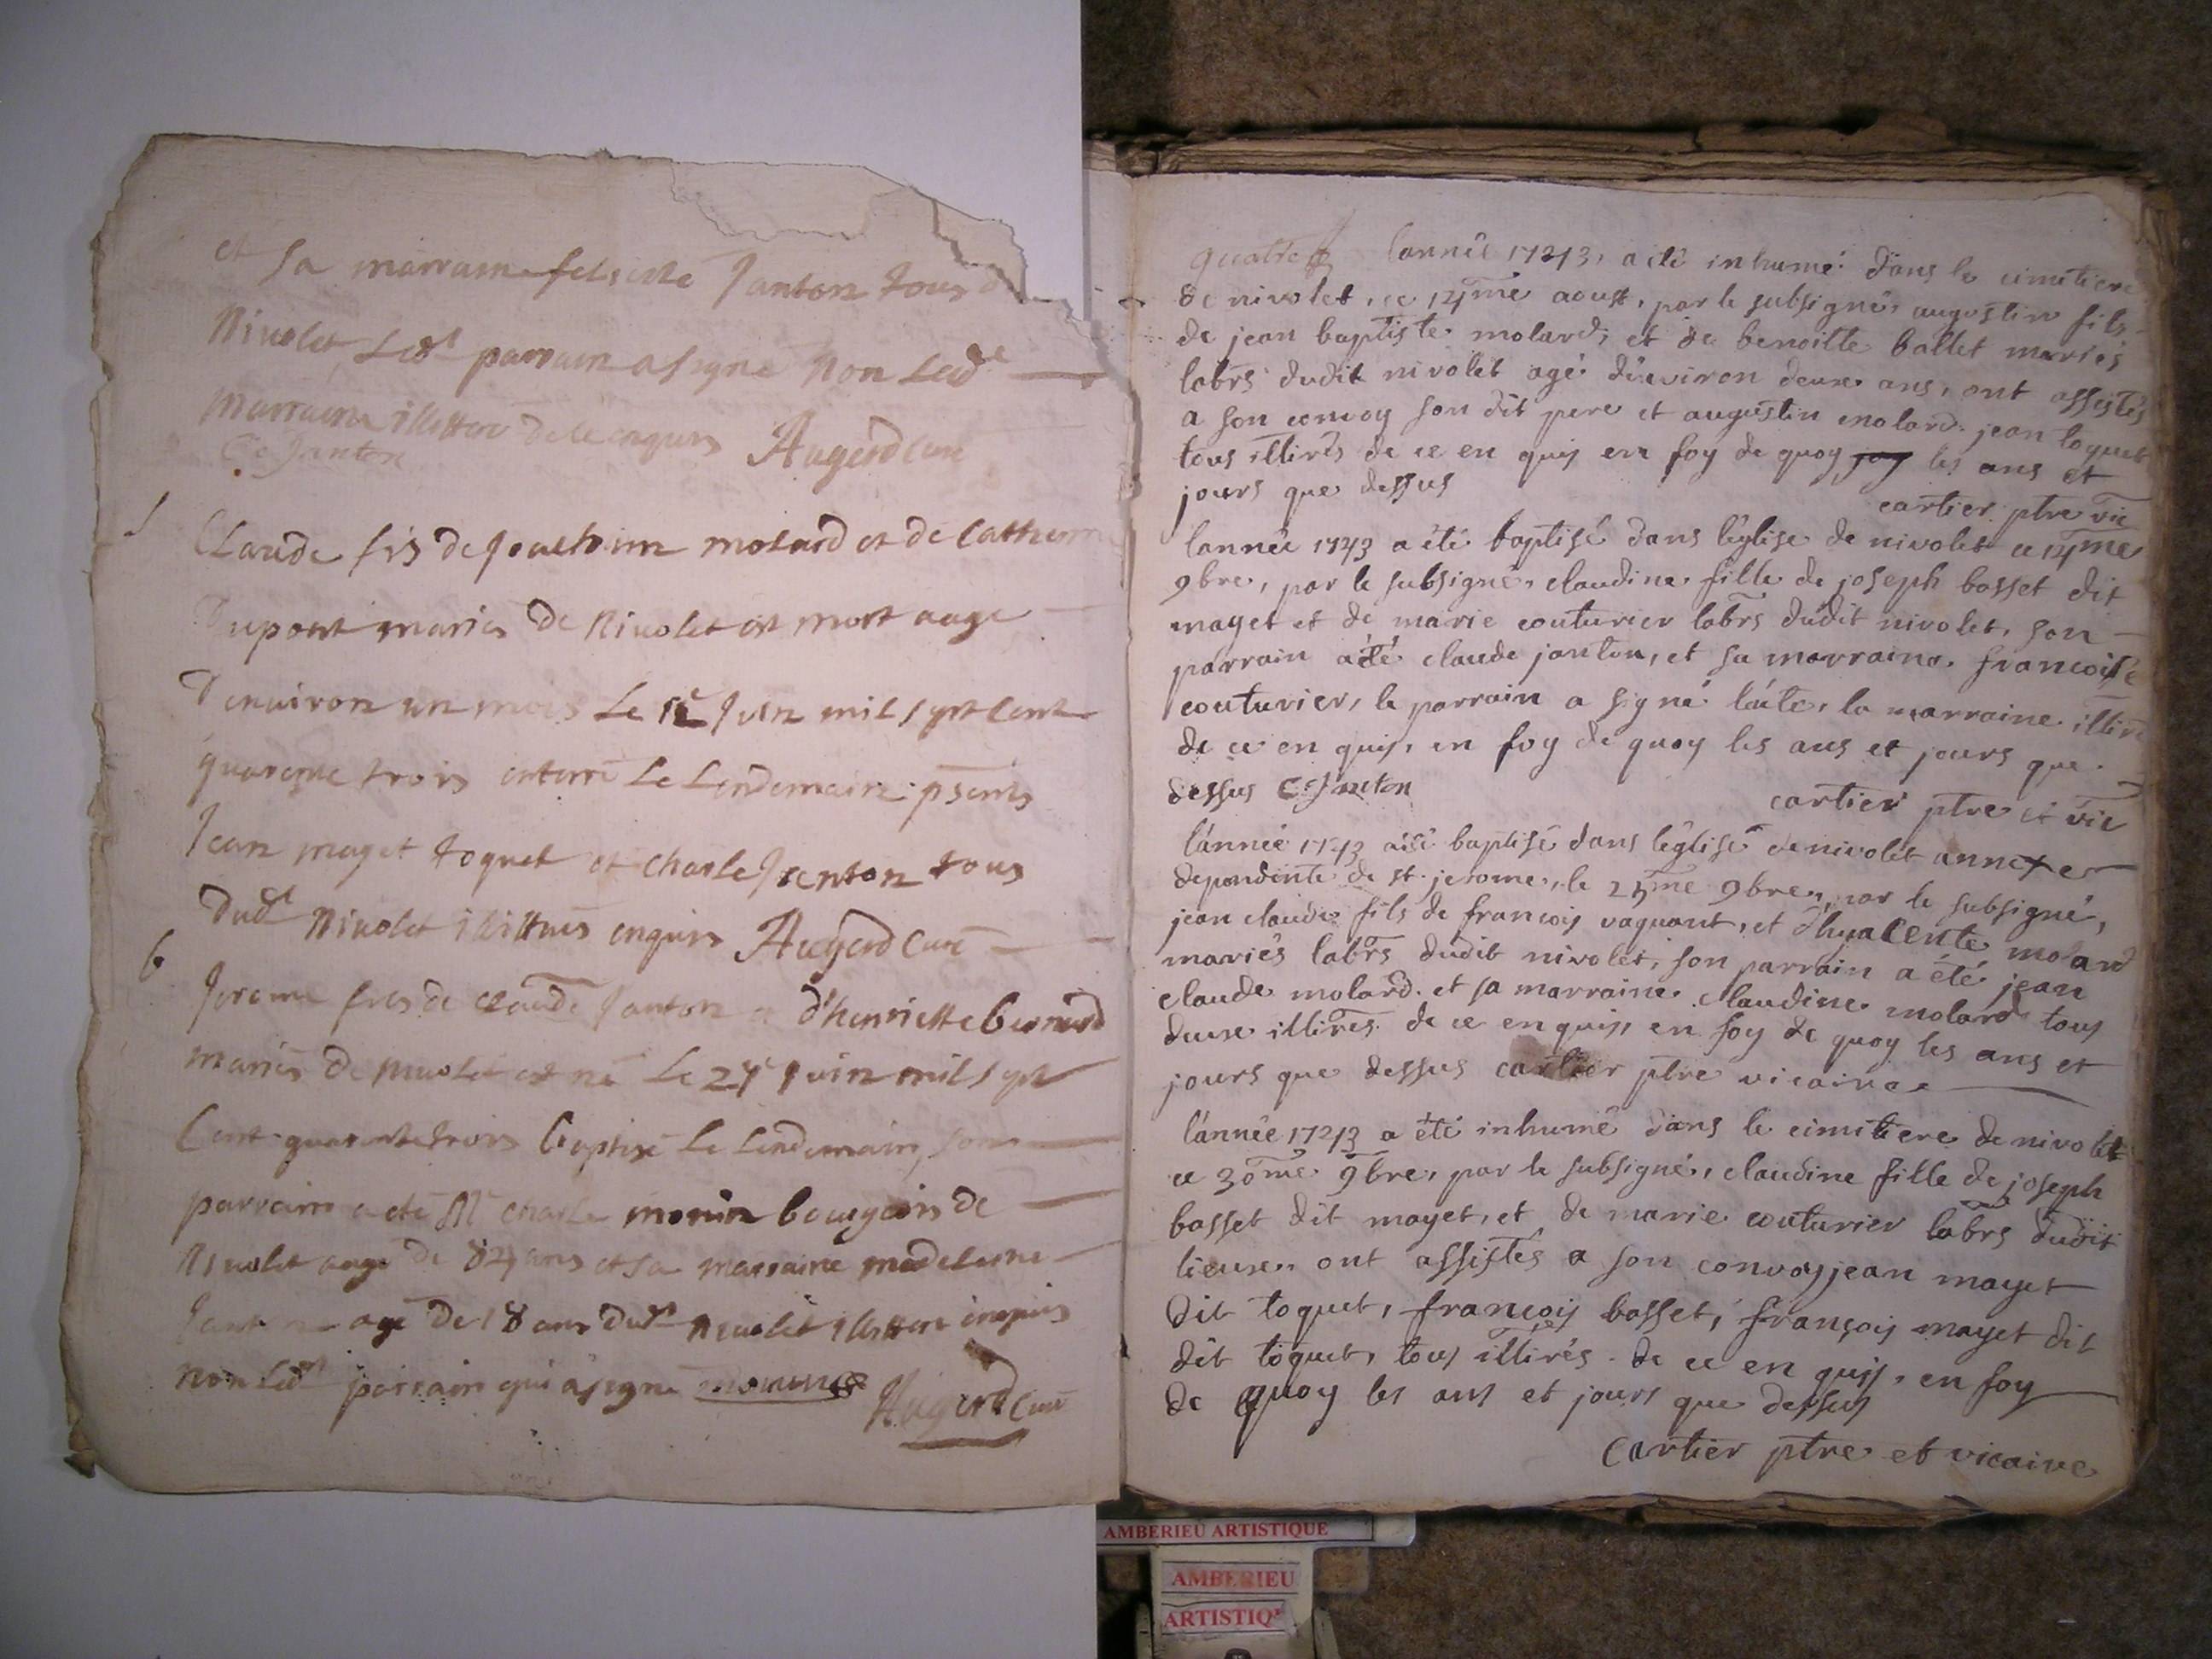 et sa marraine felicite Janton tous
Nivolet, Ledt parrain a signe Non Lade
Marraine illittere de ce enquis Augerd curé
Ce Janton
Claude fils de Joachim molard et de Catherine
Dupont mariés de Nivolet est mort aagé
D'environ un mois Le Juin mil sept cent
quarente trois enterré Le Lendemain psents
Jean mayet toquet et charle Jenton tous
Dudt Nivolet illittrés enquis Augerd Curé
b
Jerome fils de claude Janton et d'henriette bernard
mariés de nivolet est né Le 27e juin mil sept
Cent quarente trois baptisé Le Lendemain, son
parrain a eté Mr charle monin bourgeois de
Nivolet aagé de ans et sa marraine madelaine
Janton agé De 18 ans dudt Nivolet illittere enquis
non Ledt parrain qui a signe monin
Augerd curé
quatre L'année 1743, a été inhumé dans le cimitiere
de nivolet, ce 14me aoust, par le subsigné, augustin fils
de jean baptiste molard, et de benoitte ballet mariés
labrs dudit nivolet agé d'environ deux ans, ont assistés
a son convoy son dit pere et augustin molard jean toquet
tous illirés de ce en quis en foy de quoy les ans et
jours que dessus
cartier ptre vic
l'année 1743 a été baptisé dans l'église de nivolet ce 14me
9bre, par le subsigné, claudine fille de joseph basset dit
mayet et de marie couturier labrs dudit nivolet, son
parrain a été claude janton, et sa marraine francoise
couturier, le parrain a signé l'acte, la marraine illiré
de ce en quis, en foy de quoy les ans et jours que
dessus C. Janton
cartier ptre et vic
l'année 1743 a été baptisé dans l'église de nivolet annexe
dependente de st jerome, le 25me 9bre, par le subsigné,
jean claude fils de francois vaquant, et d'hyacente molard
mariés labrs dudit nivolet, son parrain a été jean
claude molard et sa marraine claudine molard tous
deux illirés de ce en quis, en foy de quoy les ans et
jours que dessus cartier ptre vicaire
l'année 1743 a été inhumé dans le cimitiere de nivolet
ce 30me 9bre, par le subsigné, claudine fille de joseph
basset dit mayet, et de marie couturier labrs dudit
lieux, ont assistés a son convoy jean mayet
dit toquet, françois basset, françois mayet dit
dit toquet, tous illirés de ce en quis, en foy
de quoy les ans et jours que dessus
cartier ptre et vicaire
AMBERIEU ARTISTIQUE
AMBERIEU
ARTISTIQ